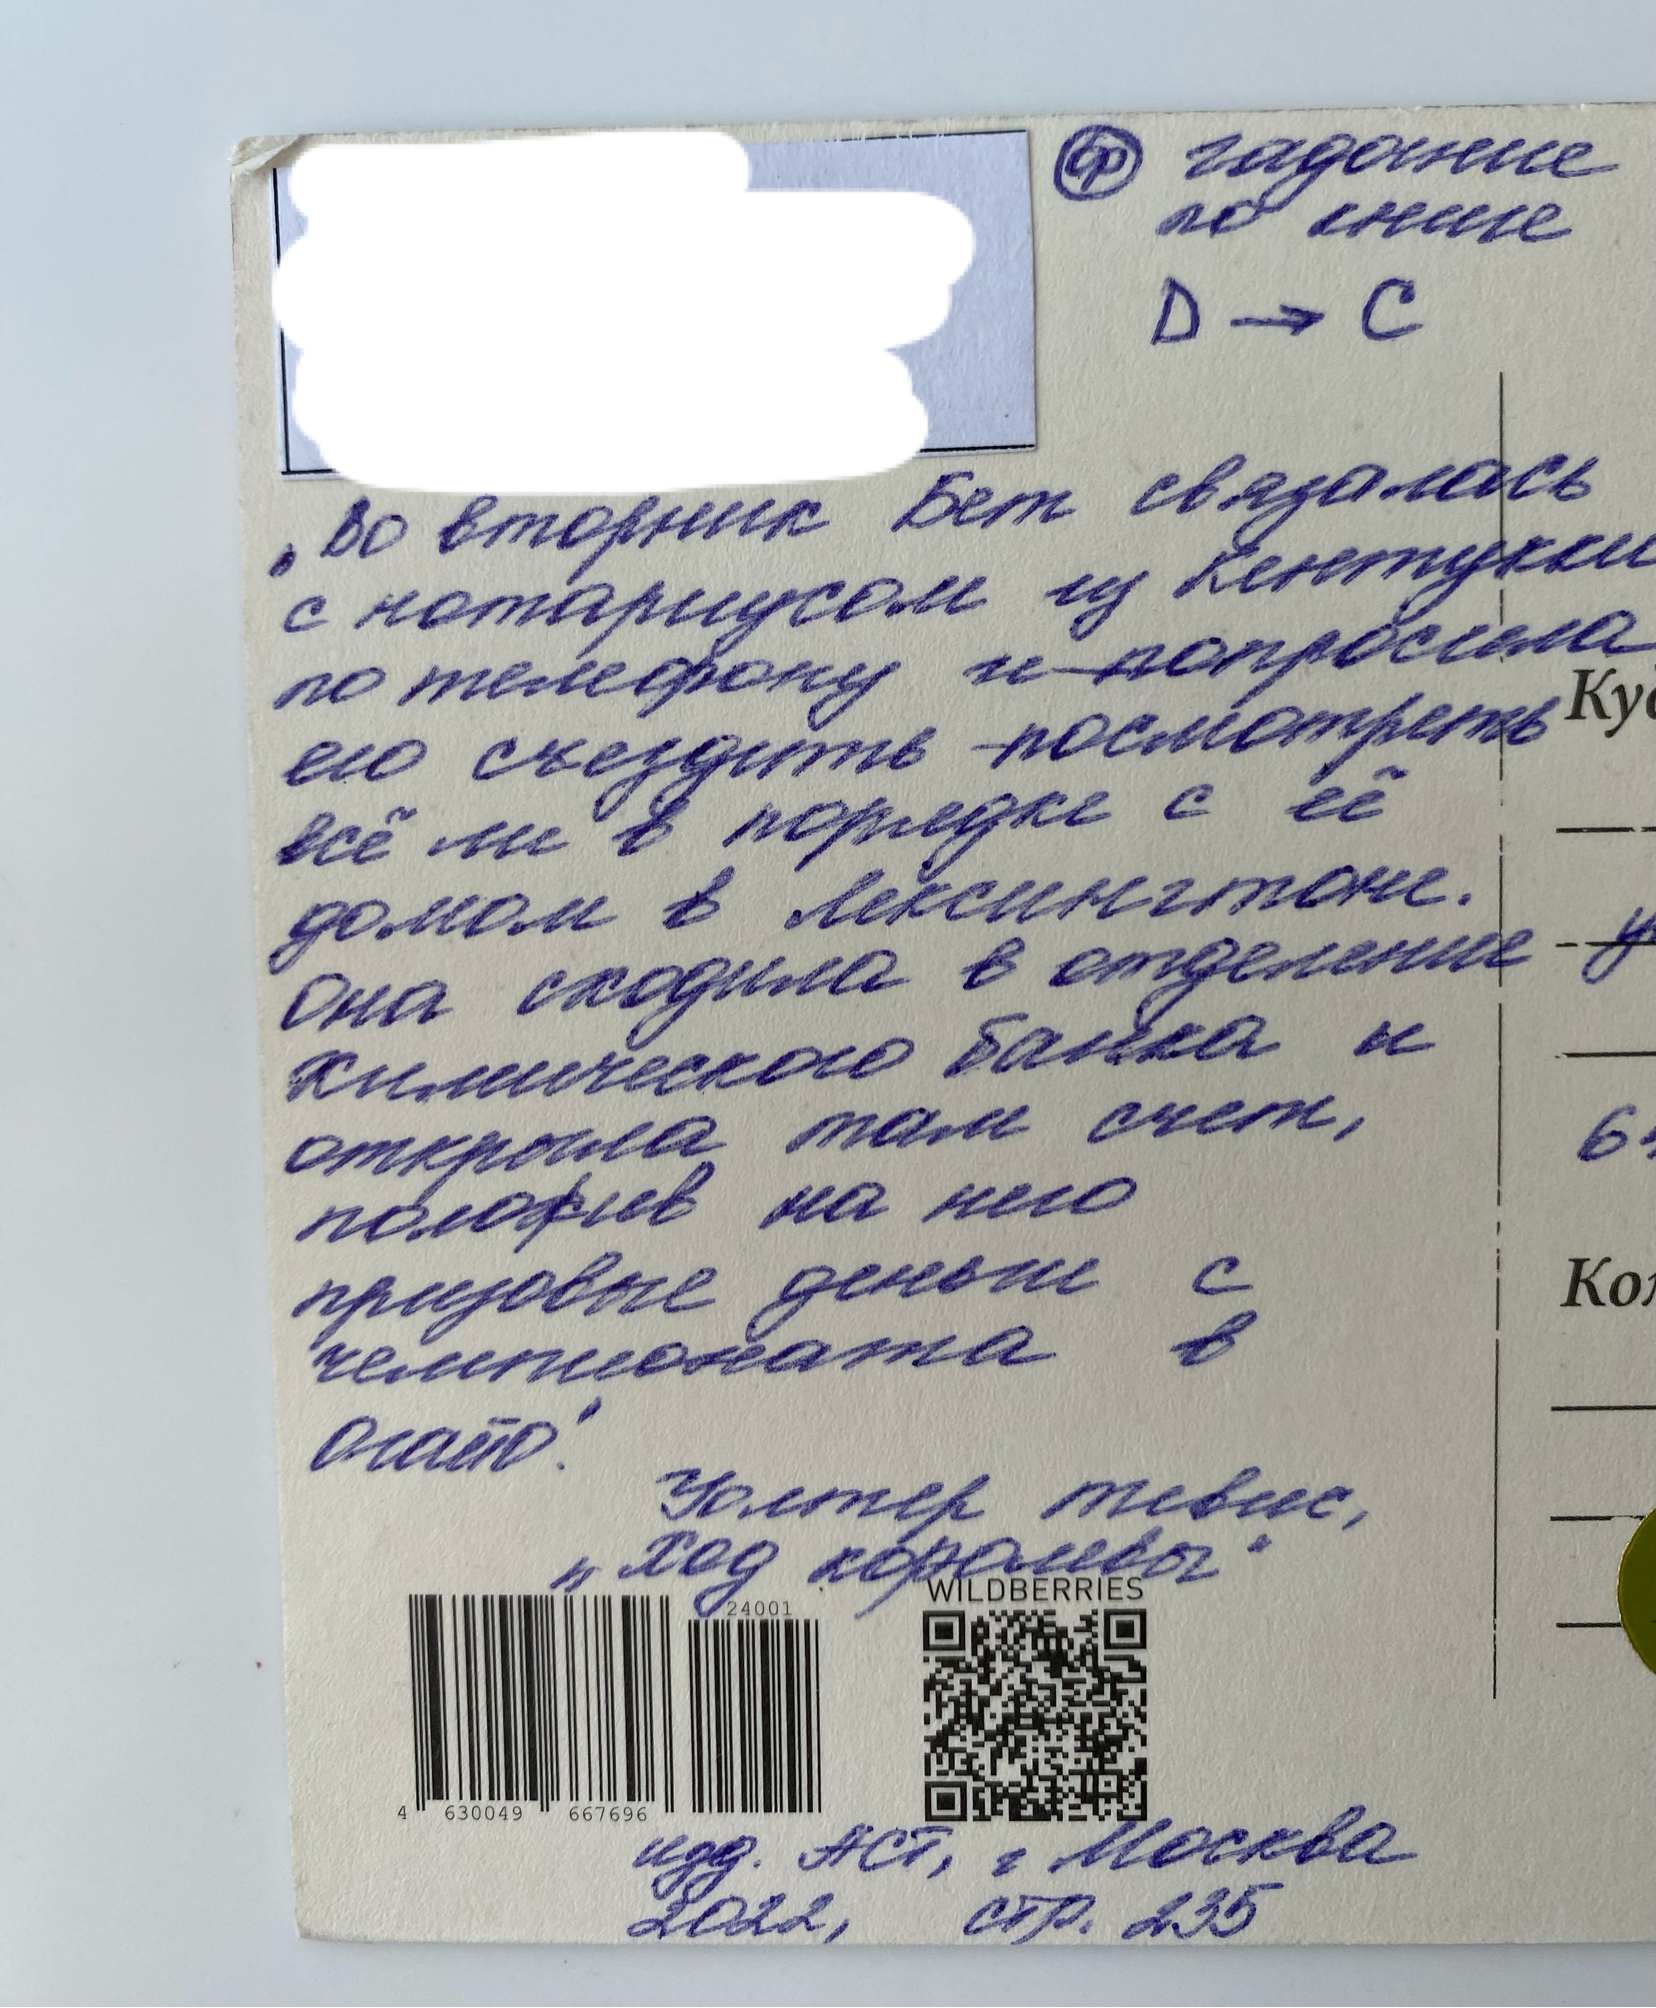 ср гадание
по книге
D → C
„Во вторник Бет связалась
с нотариусом из Кентукки
по телефону и попросила
его съездить посмотреть
всё ли в порядке с её
домом в Лексингтоне.
Она сходила в отделение
Химического банка и
открыла там счет,
положив на него
призовые деньги с
чемпионата в
Огайо".
Уолтер Тевис,
„Ход королевы"
WILDBERRIES
24001
4 630049 667696
изд. АСТ, г Москва
2022, стр. 235
Ку
Ко